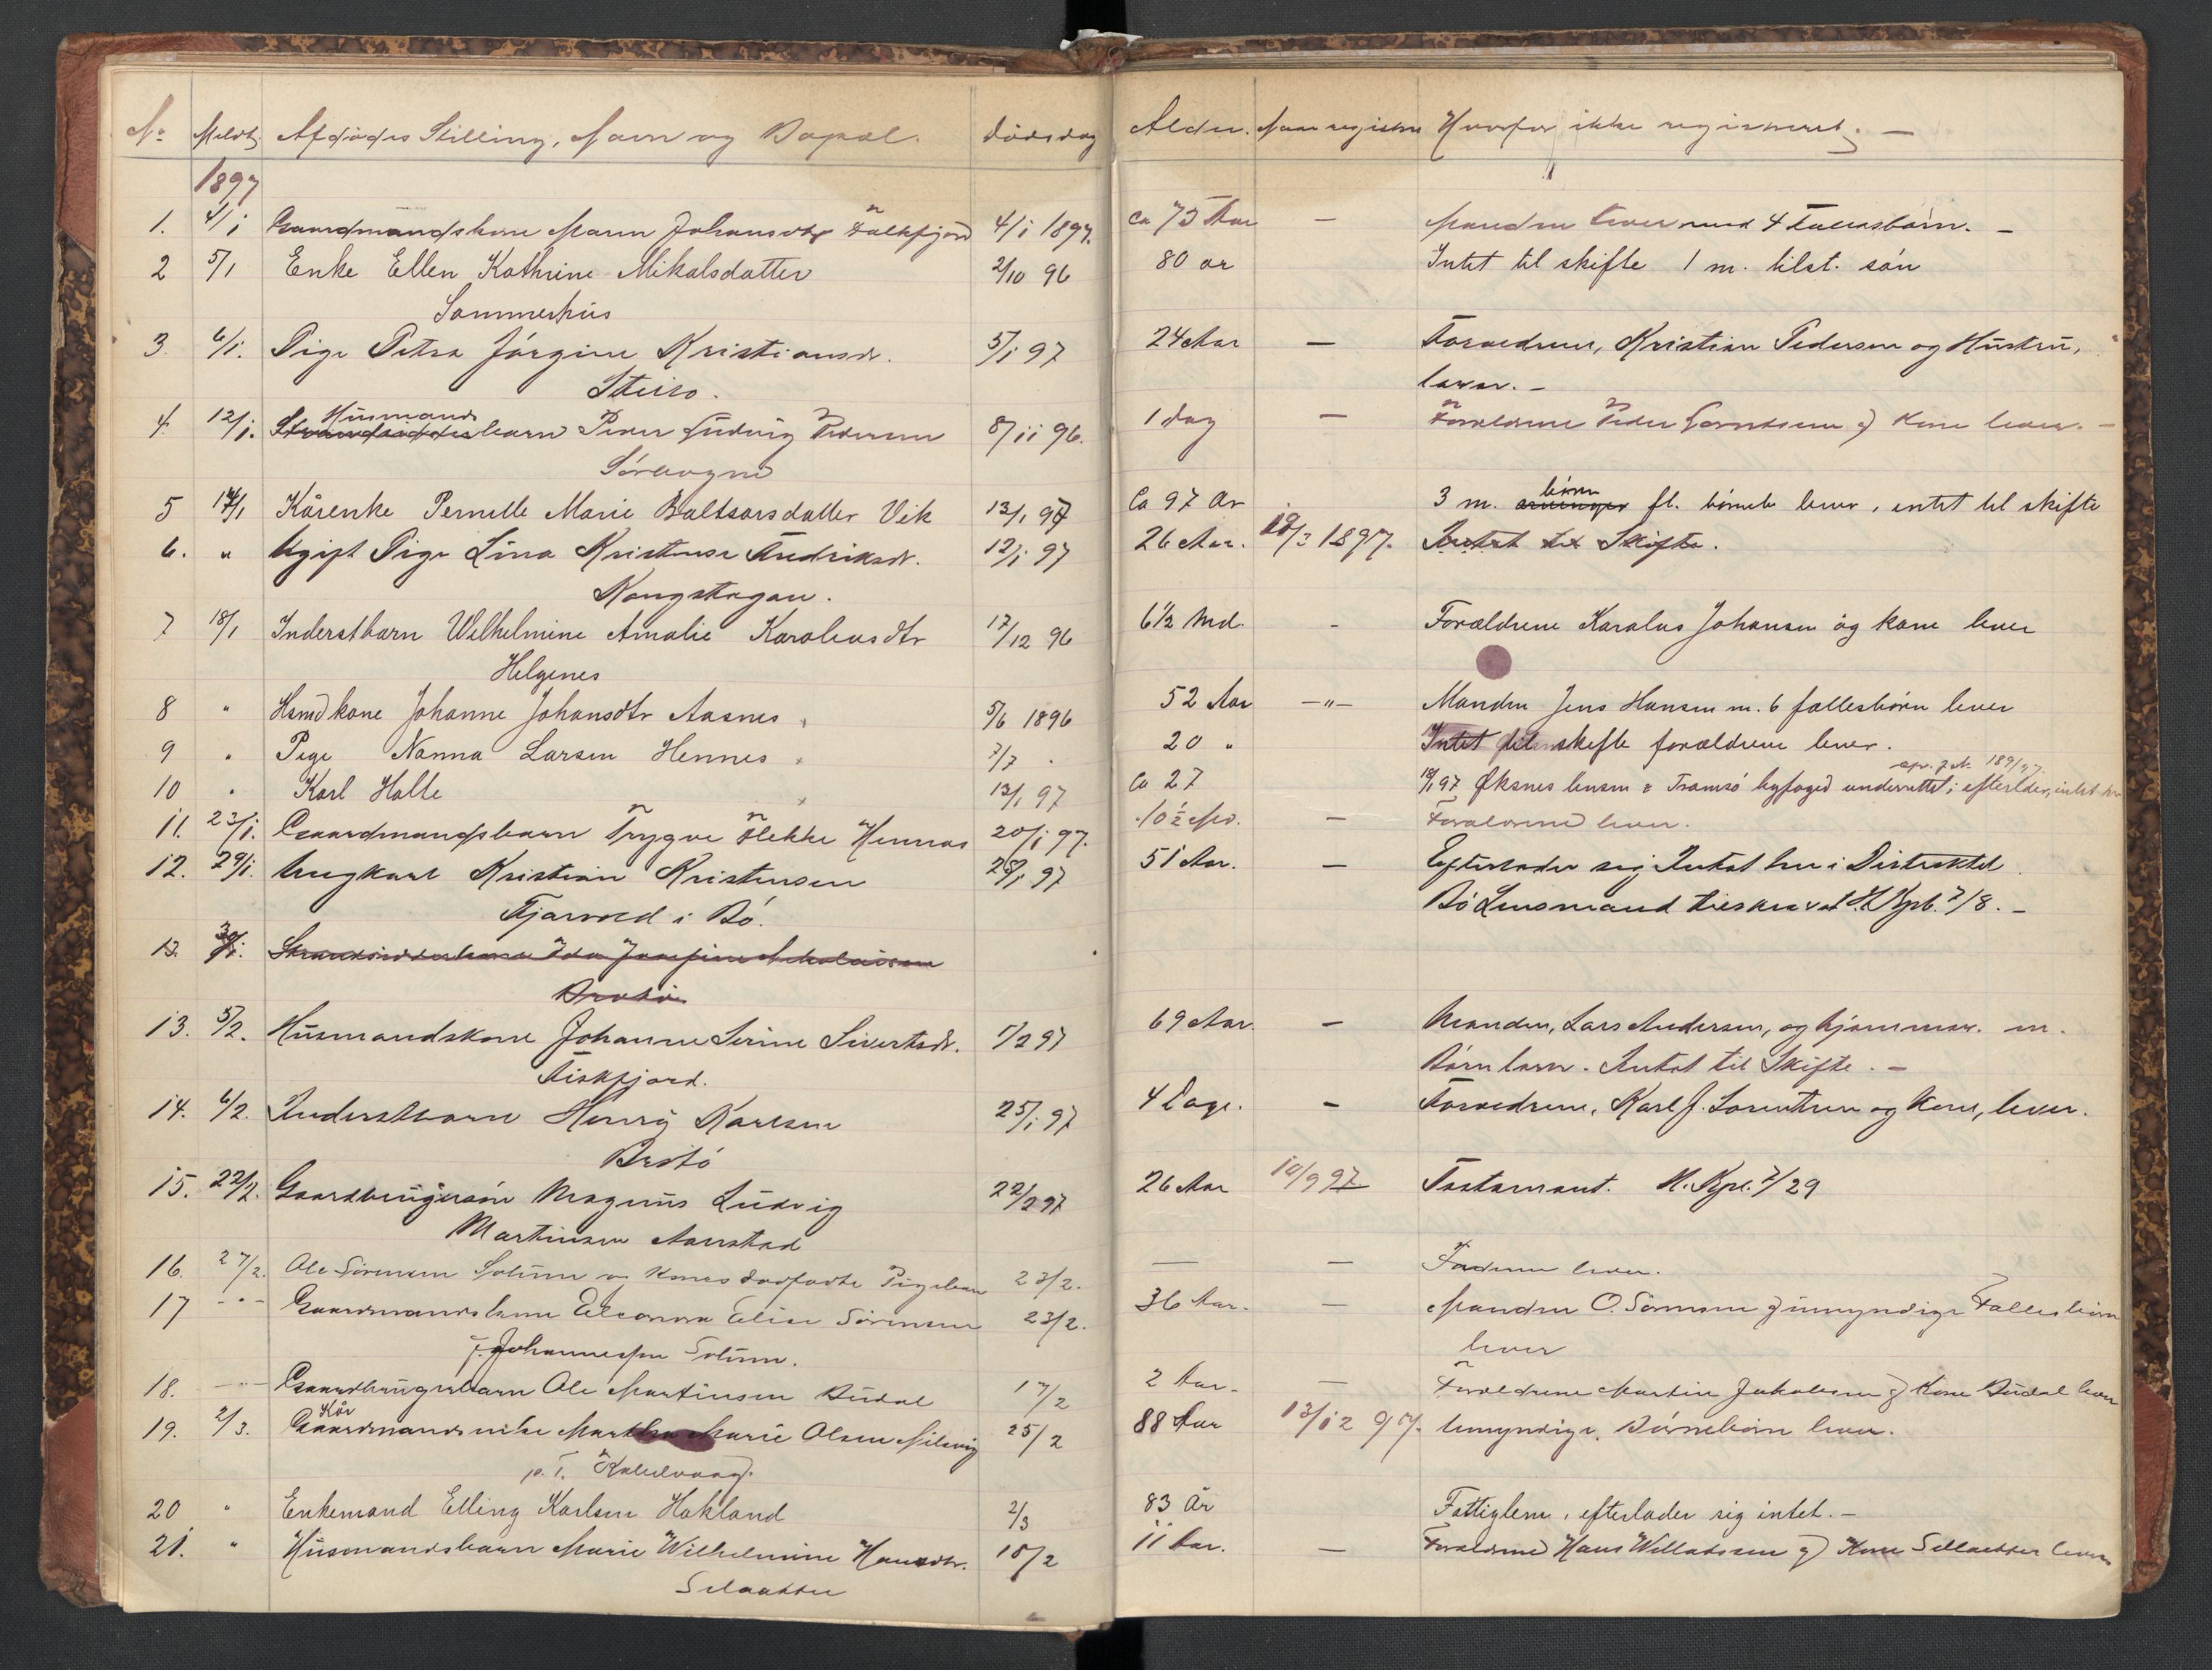 No Meldt. Afdødes Stilling, Navn og Bopæl. Dødsdag Alder. Naar registr. Hvorfor ikke registreret. —
1897
1. 4/1 Gaardmandskone Maren Johansdtr Falkfjord 4/1 1897. ca 75 Aar — Manden lever med 4 Fællesbørn. —
2 5/1 Enke Ellen Kathrine Mikalsdatter 2/10 96 80 år Intet til skifte 1 m. tilst. søn
Sommerhus
3. 6/1. Pige Petra Jørgine Kristiansdr. 5/1 97 24 Aar — Forældrene, Kristian Pedersen og Hustru,
Steiro. lever. —
Husmands
4. 12/1. Strandsidderbarn Peder Ludvig Pedersen 8/11 96. 1 Dag — Forældrene Peder Lorentsen og Kone lever. —
Sørvogne
børn
5 14/1 Kårenke Pernelle Marie Baltsarsdatter Vik 13/1 97 Ca 97 År 3 m. arvinger fl. børneb lever, intet til skifte
6. " Ugift Pige Lina Kristense Fredriksdr. 12/1 97 26 Aar. 18/3 1897. Intet til Skifte.
Kongstegan.
7 18/1 Inderstbarn Wilhelmine Amalie Karoleusdtr 17/12 96 6 1/2 Md. - Forældrene Karolus Johansen og kone lever
Helgenes
8 " Hsmdkone Johanne Johansdtr Aasnes 5/6 1896 52 Aar —"— Manden Jens Hansen m. 6 fællesbørn lever
9 " Pige Nanna Larsen Hennes 7/7 20 " Intet til skifte forældrene lever.
apr. j. No. 189/97
10 " Karl Holte 13/1 97 Ca 27 19/1 97 Øksnes lensm & Tromsø byfoged underrettet; efterlader intet her
11. 23/1. Gaardmandsbarn Trygve Flekke Hennes 20/1 97. 10 1/2 Md. — Forældrene lever.
12. 29/1. Ungkarl Kristian Kristensen 28/1 97 51 Aar. — Efterlader sig Intet her i Distriktet.
Fjærvold i Bø. Bø Lensmand tilskrevet H. Kpb. 7/8. —
13. 30/1. Strandsidderkone Ida Josefine Nikolaisen
Brotø
13. 5/2. Husmandskone Johanne Serine Sivertsdr. 1/2 97 69 Aar. — Manden, Lars Andersen, og hjemmev. m.
Fiskfjord. Børn lever. Intet til Skifte. —
14. 6/2. Inderstbarn Henry Karlsen 25/1 97 4 Dage. — Forældrene, Karl J. Lorentsen og Kone, lever.
Brotø
15. 22/2. Gaardbrugersøn Magnus Ludvig 22/2 97 26 Aar 10/9 97 Testament. H. Kpb. 7/29
Martinsen Aarstad
16. 27/2. Ole Sørensen Solum og Kones dødfødte Pigebarn 23/2. — — Faderen lever.
17 —"— Gaardmandskone Eleonora Elise Sørensen 23/2. 36 Aar. — Manden O. Sørensen og umyndige Fællesbørn
f. Johannessen Solum. lever
18. —"— Gaardbrugerbarn Ole Martinsen Budal 17/2 2 Aar. — Forældrene Martin Jakobsen og Kone Budal lever
Kår
19. 2/3. Gaardmandsenke Martha Marie Olsen Milevig 25/2 88 Aar 13/12 97. Umyndige Børnebørn lever.
p. T. Kaledvaag.
20 " Enkemand Elling Karlsen Hokland 2/3 83 År Fattiglem, efterlader sig intet. —
21. " Husmandsbarn Marie Wilhelmine Hansdtr. 10/2 11 Aar. — Forældrene Hans Willatssen og Kone Sellaatter lever
Selaatter